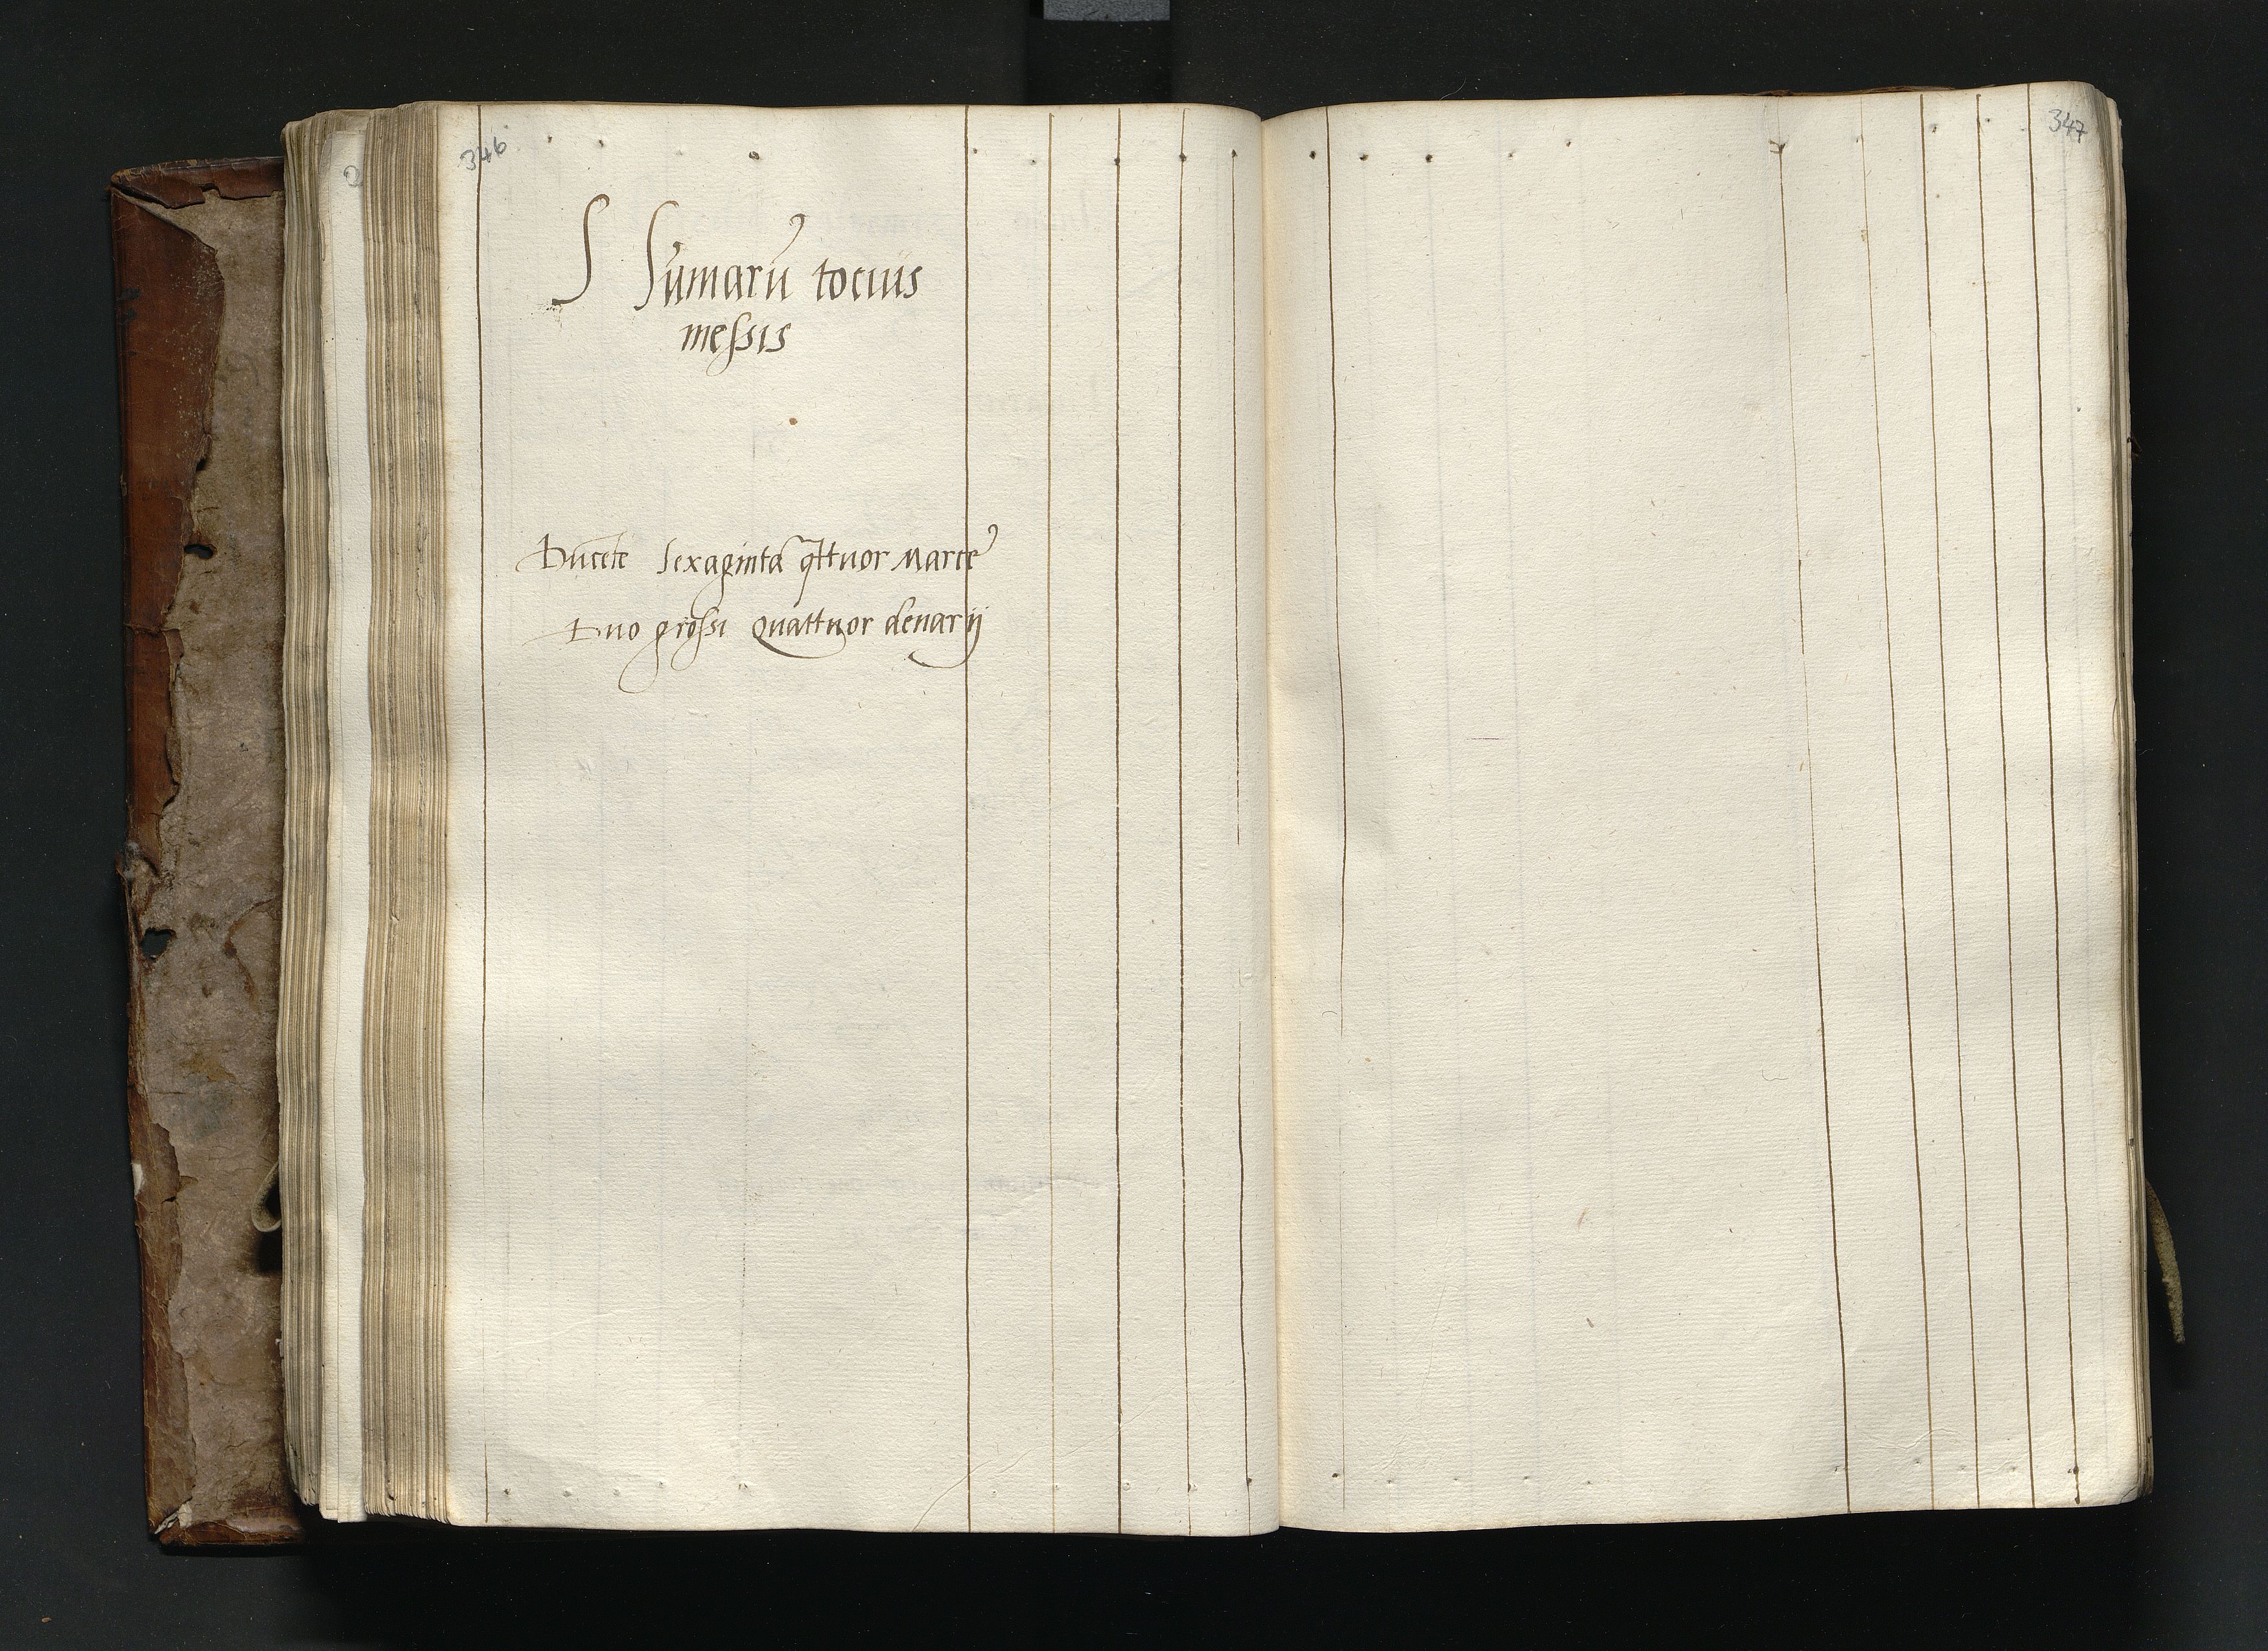 346
S Sūmarū tocius
messis
Ducēte sexaginta qttuor Marce
Duo grossi Quattuor denarij
347